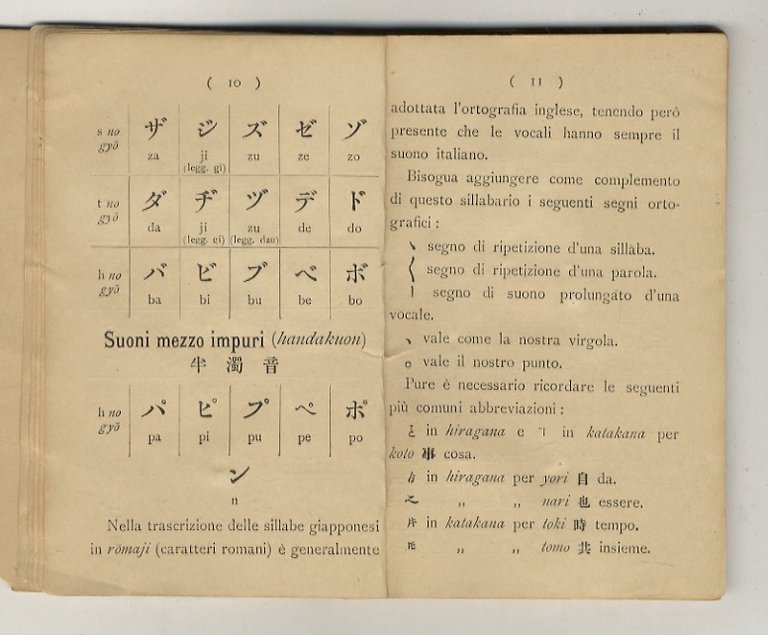 ( 10 )
s no gyō ザ ジ ズ ゼ ゾ
za ji zu ze zo
(legg. gi)
t no gyō ダ ヂ ヅ デ ド
da ji zu de do
(legg. gi) (legg. dzu)
h no gyō バ ビ ブ ベ ボ
ba bi bu be bo
Suoni mezzo impuri (handakuon)
半濁音
h no gyō パ ピ プ ペ ポ
pa pi pu pe po
ン
n
Nella trascrizione delle sillabe giapponesi
in rōmaji (caratteri romani) è generalmente
( 11 )
adottata l'ortografia inglese, tenendo però
presente che le vocali hanno sempre il
suono italiano.
Bisogua aggiungere come complemento
di questo sillabario i seguenti segni orto-
grafici :
ヽ segno di ripetizione d'una sillaba.
〱 segno di ripetizione d'una parola.
| segno di suono prolungato d'una
vocale.
、 vale come la nostra virgola.
。 vale il nostro punto.
Pure é necessario ricordare le seguenti
più comuni abbreviazioni :
in hiragana e ヿ in katakana per
koto 事 cosa.
ゟ in hiragana per yori 自 da.
„ „ nari 也 essere.
in katakana per toki 時 tempo.
„ „ tomo 共 insieme.